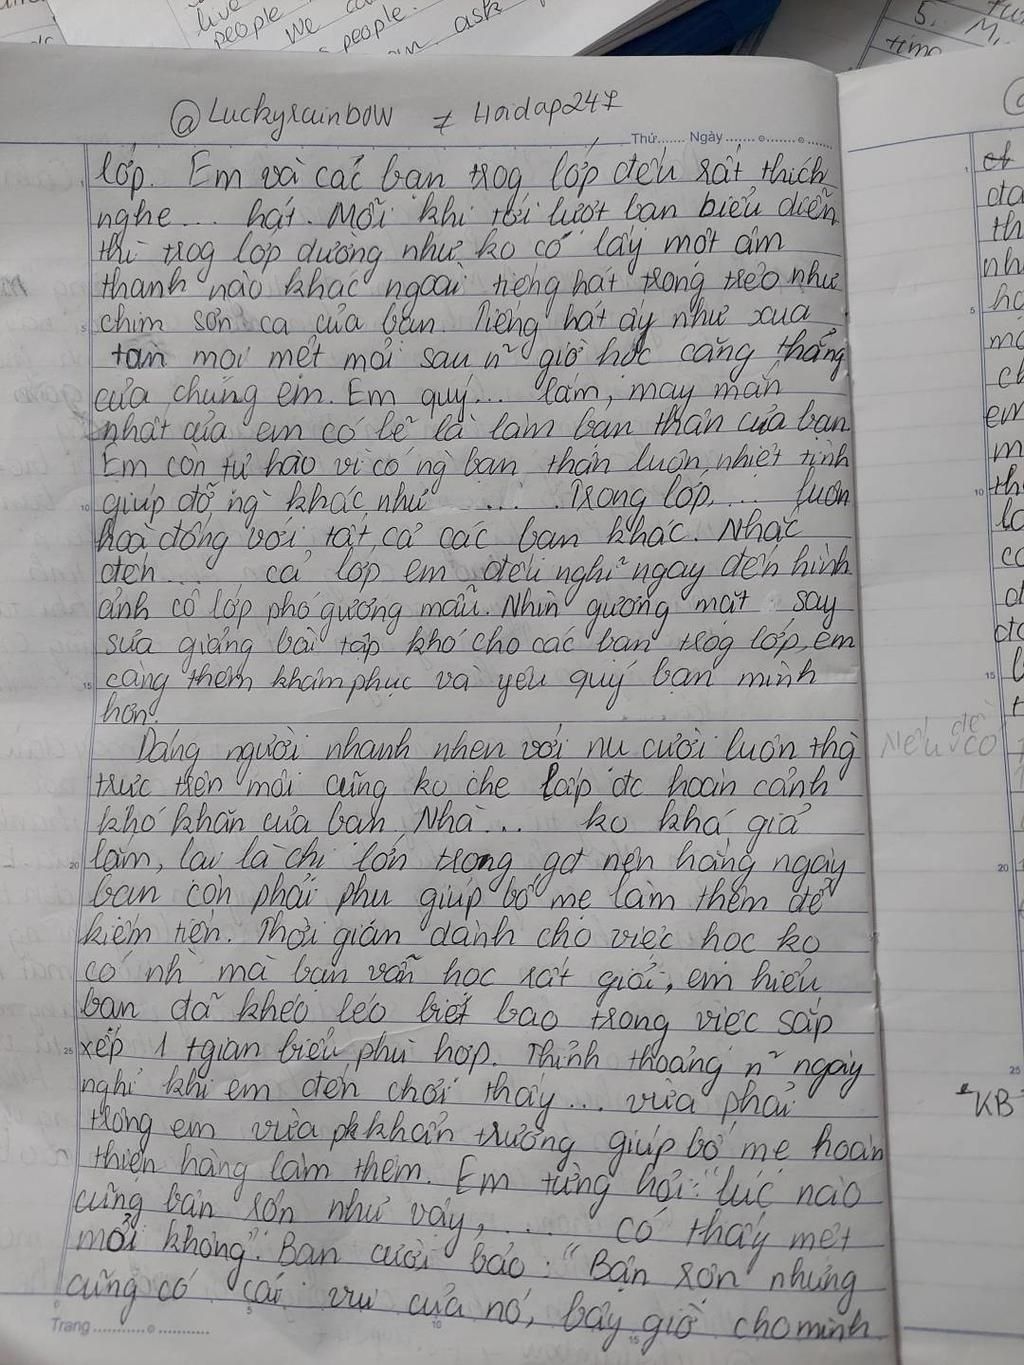 live
people
We
people.
ask
5.
time
M,
@Luckyrainbow ≠ Hoidap247
Thứ...... Ngày
lớp. Em và các bạn trog lớp đều rất thích
nghe ... hát. Mỗi khi tới lượt bạn biểu diễn
thì trog lớp dường như ko có lấy một âm
thanh nào khác ngoài tiếng hát trong trẻo như
chim sơn ca của bạn. Tiếng hát ấy như xua
tan mọi mệt mỏi sau n² giờ học căng thẳng
của chúng em. Em quý... lắm, may mắn
nhất của em có lẽ là làm bạn thân của bạn.
Em còn tự hào vì có ng` bạn thân luôn nhiệt tình
giúp đỡ ng` khác như ..... Trong lớp, ... luôn
hoà đồng với tất cả các bạn khác. Nhắc
đến ... cả lớp em đều nghĩ ngay đến hình
ảnh cô lớp phó gương mẫu. Nhìn gương mặt say
sưa giảng bài tập khó cho các bạn trog lớp, em
càng thêm khâm phục và yêu quý bạn mình
hơn.
Dáng người nhanh nhẹn với nụ cười luôn thg`
trực trên môi cũng ko che lấp đc hoàn cảnh
khó khăn của bạn. Nhà ... ko khá giả
lắm, lại là chị lớn trong gđ nên hằng ngày
bạn còn phải phụ giúp bố mẹ làm thêm để
kiếm tiền. Thời gian dành cho việc học ko
có nh` mà bạn vẫn học rất giỏi, em hiểu
bạn đã khéo léo biết bao trong việc sắp
xếp 1 tgian biểu phù hợp. Thỉnh thoảng n² ngày
nghỉ khi em đến chơi thấy ... vừa phải
trông em vừa khẩn trương giúp bố mẹ hoàn
thiện hàng làm thêm. Em từng hỏi: "lúc nào
cũng bận rộn như vậy, ... có thấy mệt
mỏi không". Bạn cười bảo: "Bận rộn nhưng
cũng có cái vui của nó, bây giờ cho mình
Trang
Nếu đề
có
"KB"